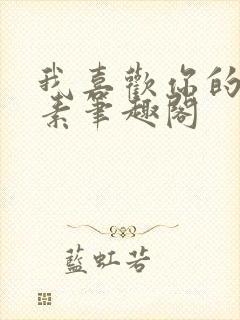 我喜歡你的
素筆趣閣
藍虹若